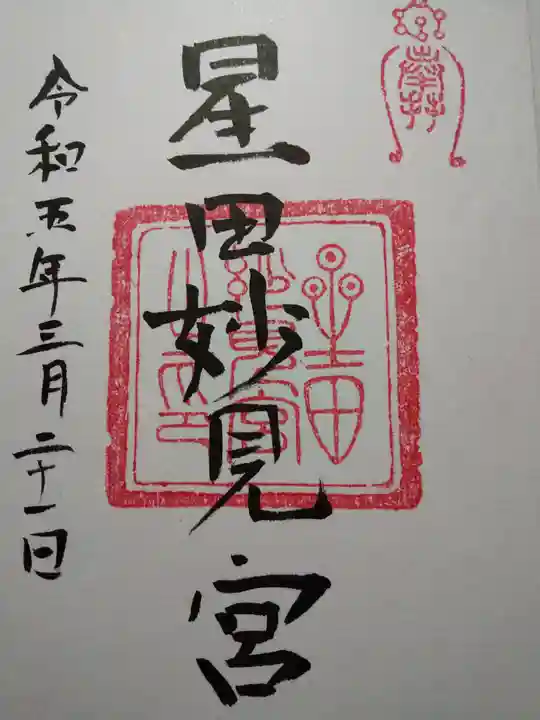 星田妙見宮
令和五年三月二十一日